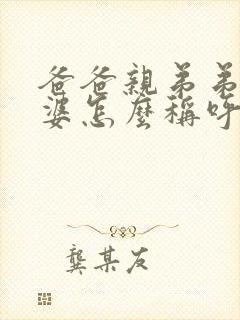 爸爸親弟弟
婆怎麼稱呼
龔某友